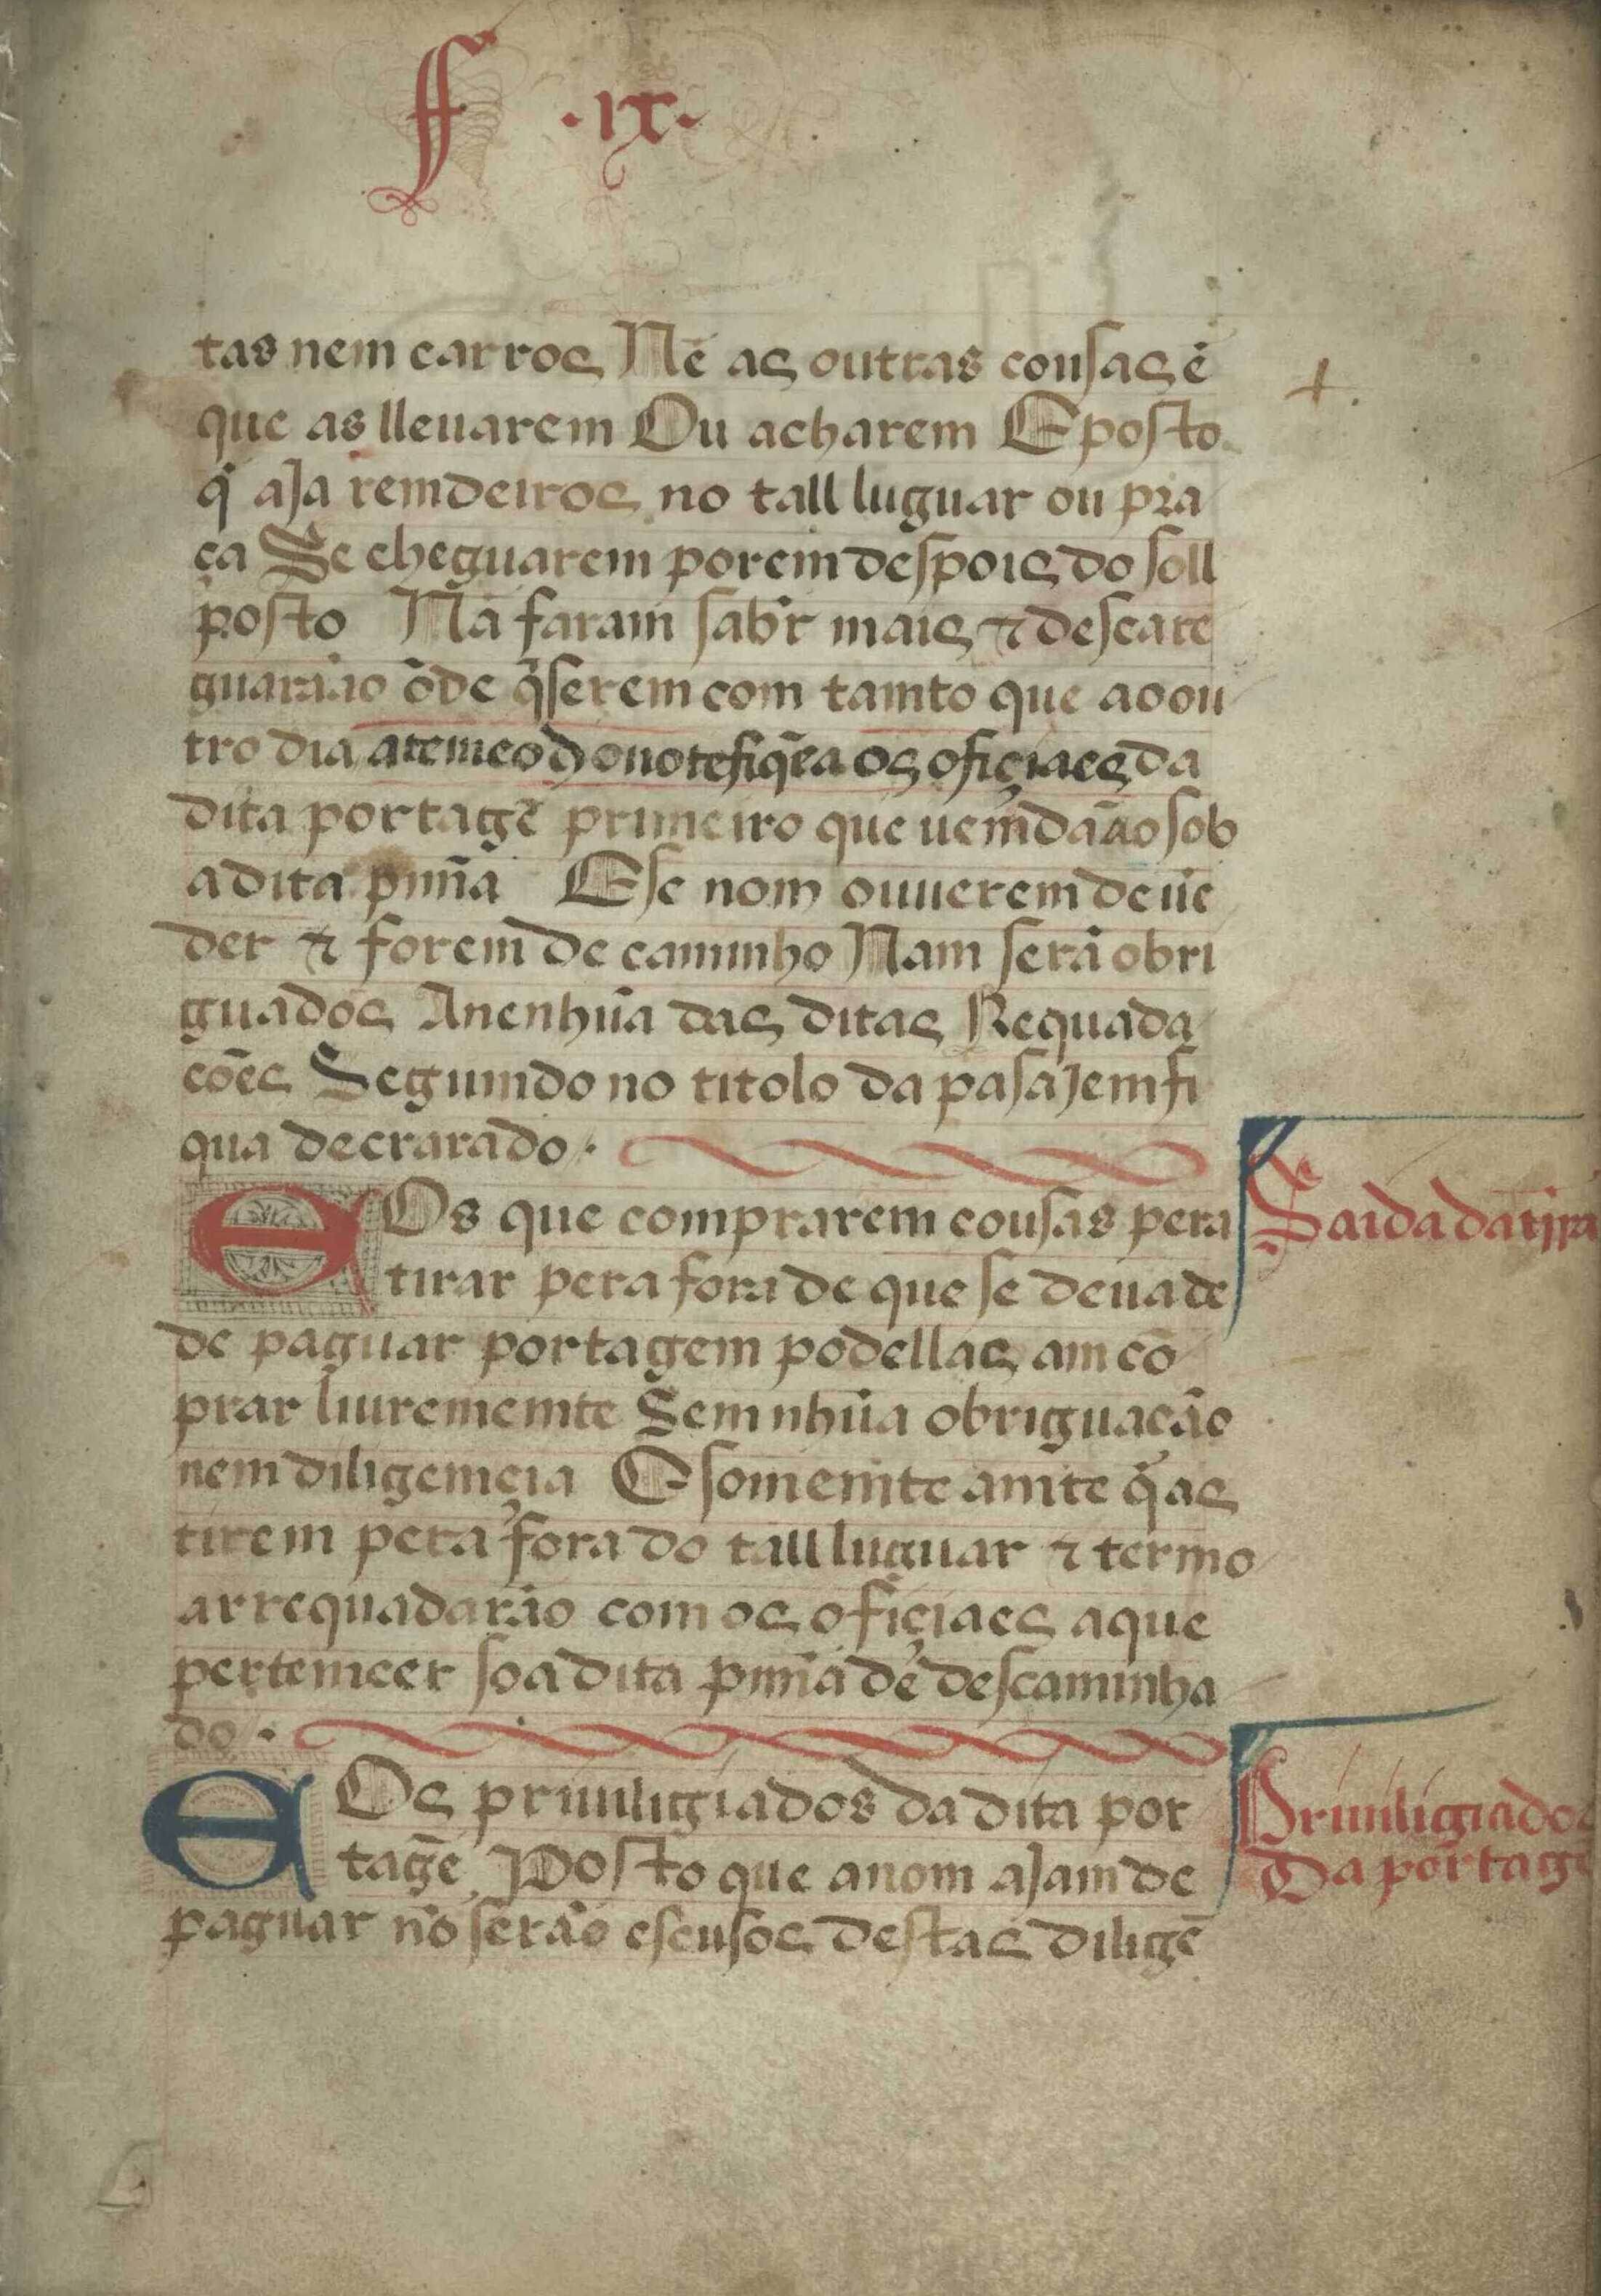 ff ·ix·
tas nem carros Nẽ as outras cousas ẽ
que as lleuarem Ou acharem E posto
q̃ aJa remdeiros no tall luguar ou pra
ça Se cheguarem porem despois do soll
posto Nã faram sab̃r mais ⁊ descare
guarão õde q̃serem com tamto que ao ou
tro dia ate meo d̃ o notefiq̃ẽ a os ofiçiaes da
dita portagẽ primeiro que uemdã ao sob
a dita pena E se nom ouuerem de uẽ
der ⁊ forem de caminho Nam serã obri
guados A nenhũa das ditas Requada
cões Seguimdo no titolo da pasaJem fi
qua decrarado ·
E Os que comprarem cousas pera
tirar pera fora de que se deua de
de paguar portagem podellas am cõ
prar liurememte Sem nhũa obriguacão
nem diligemcia E somemte amte q̃ as
tirem pera fora do tall luguar ⁊ termo
arrequadarão com os ofiçiaes a que
pertemcer so a dita pena de descaminha
do ·
Saida da tira
E Os priuiligiados da dita por
tagẽ Posto que a nom aJam de
paguar nõ serão escusos destas diligẽ
Priuiligiados
Da portagẽ